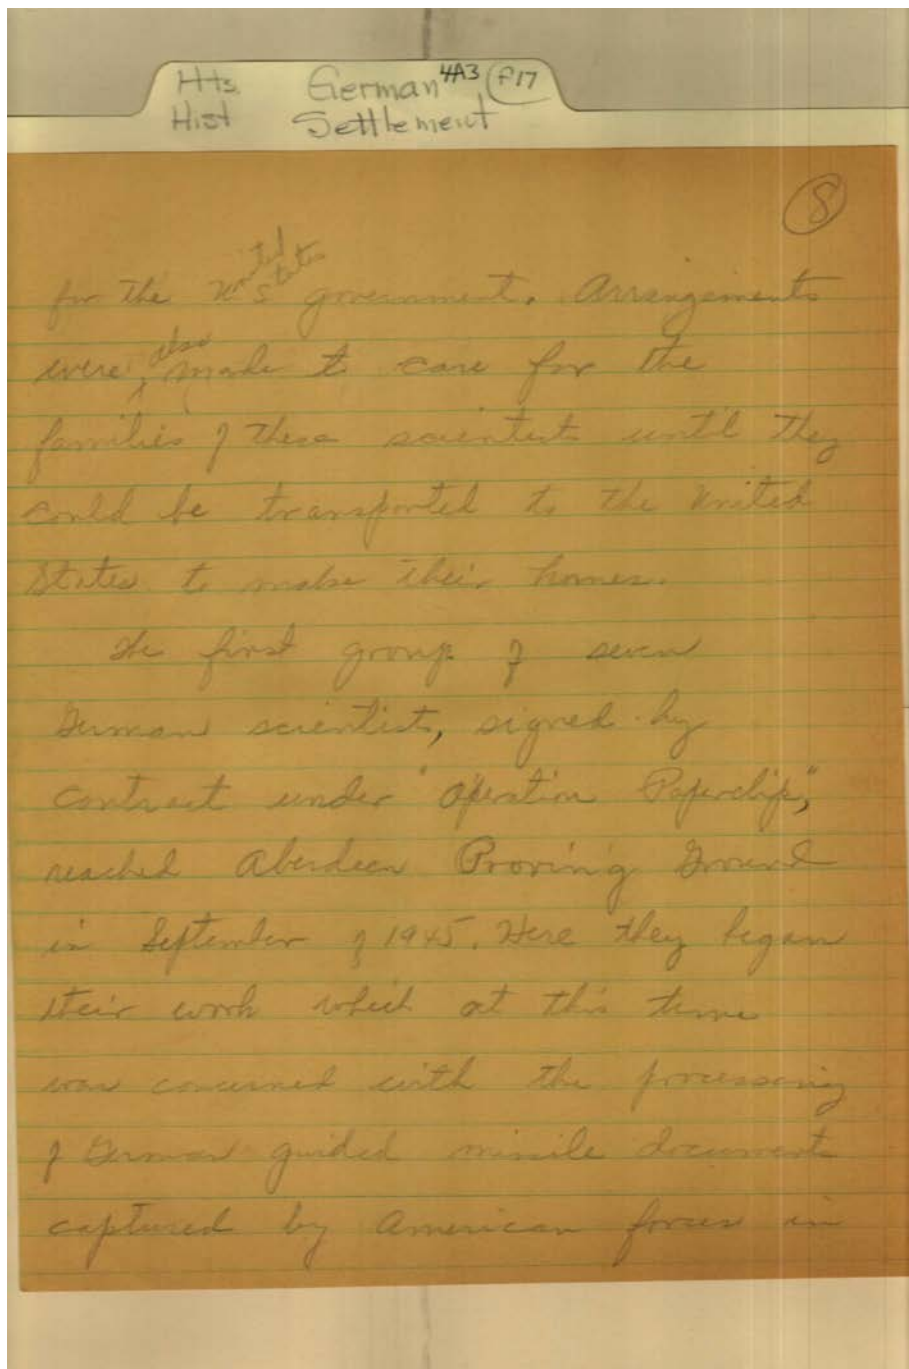 Hts. German 4A3 F17
Hist Settlement
8
for the U United S States government. Arrangements
were, also made to care for the
families of these scientists until they
could be transported to the United
States to make their homes.
The first group of seven
German scientists, signed by
contract under "Operation Paperclip,"
reached Aberdeen Proving Ground
in September of 1945. Here they began
their work which at this time
was concerned with the processing
of German guided missile documents
captured by American forces in